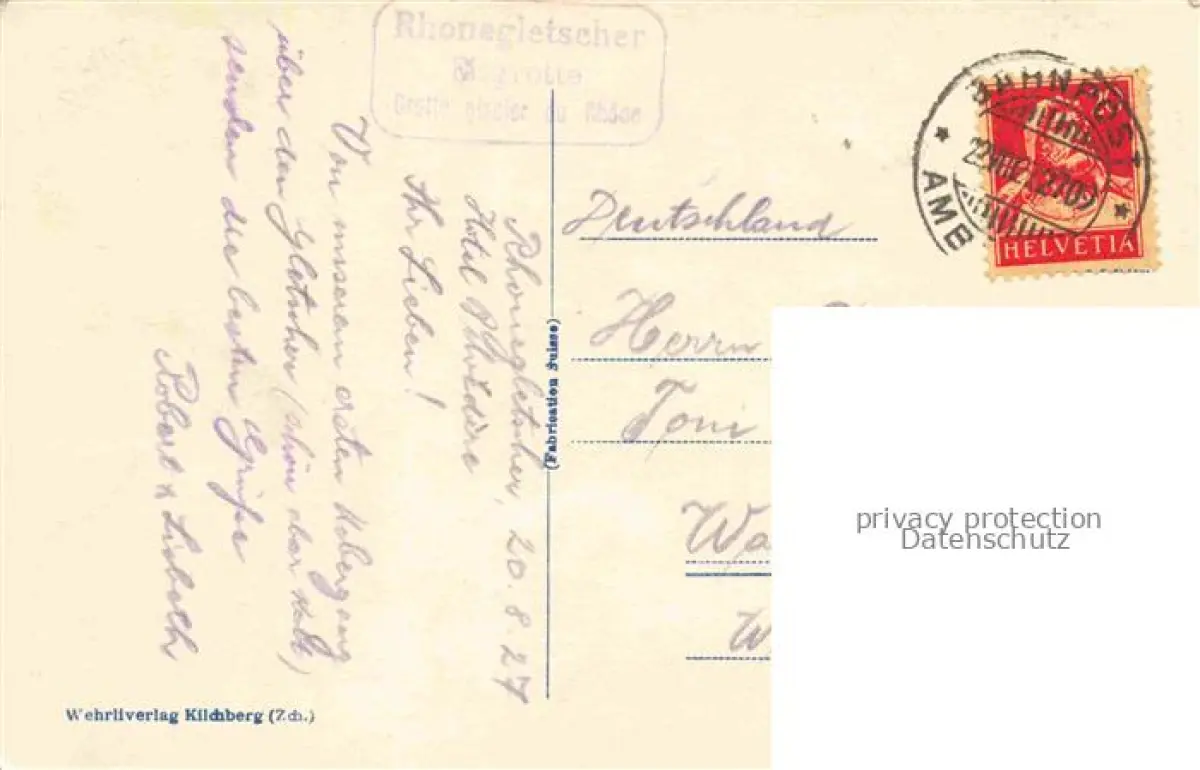 Rhonegletscher
Eisgrotte
Grotte glacier du Rhône
Rhonegletscher, 20.8.27
Hotel Belvédère
Ihr Lieben!
Von unserem ersten Übergang
über den Gletscher (schön aber kalt)
senden die besten Grüße
Robert & Lisbeth
(Fabrication Suisse)
Wehrliverlag Kilchberg (Zch.)
BAHNPOST
AMB
HELVETIA
Deutschland
Herrn
Toni
Wa
W
privacy protection
Datenschutz